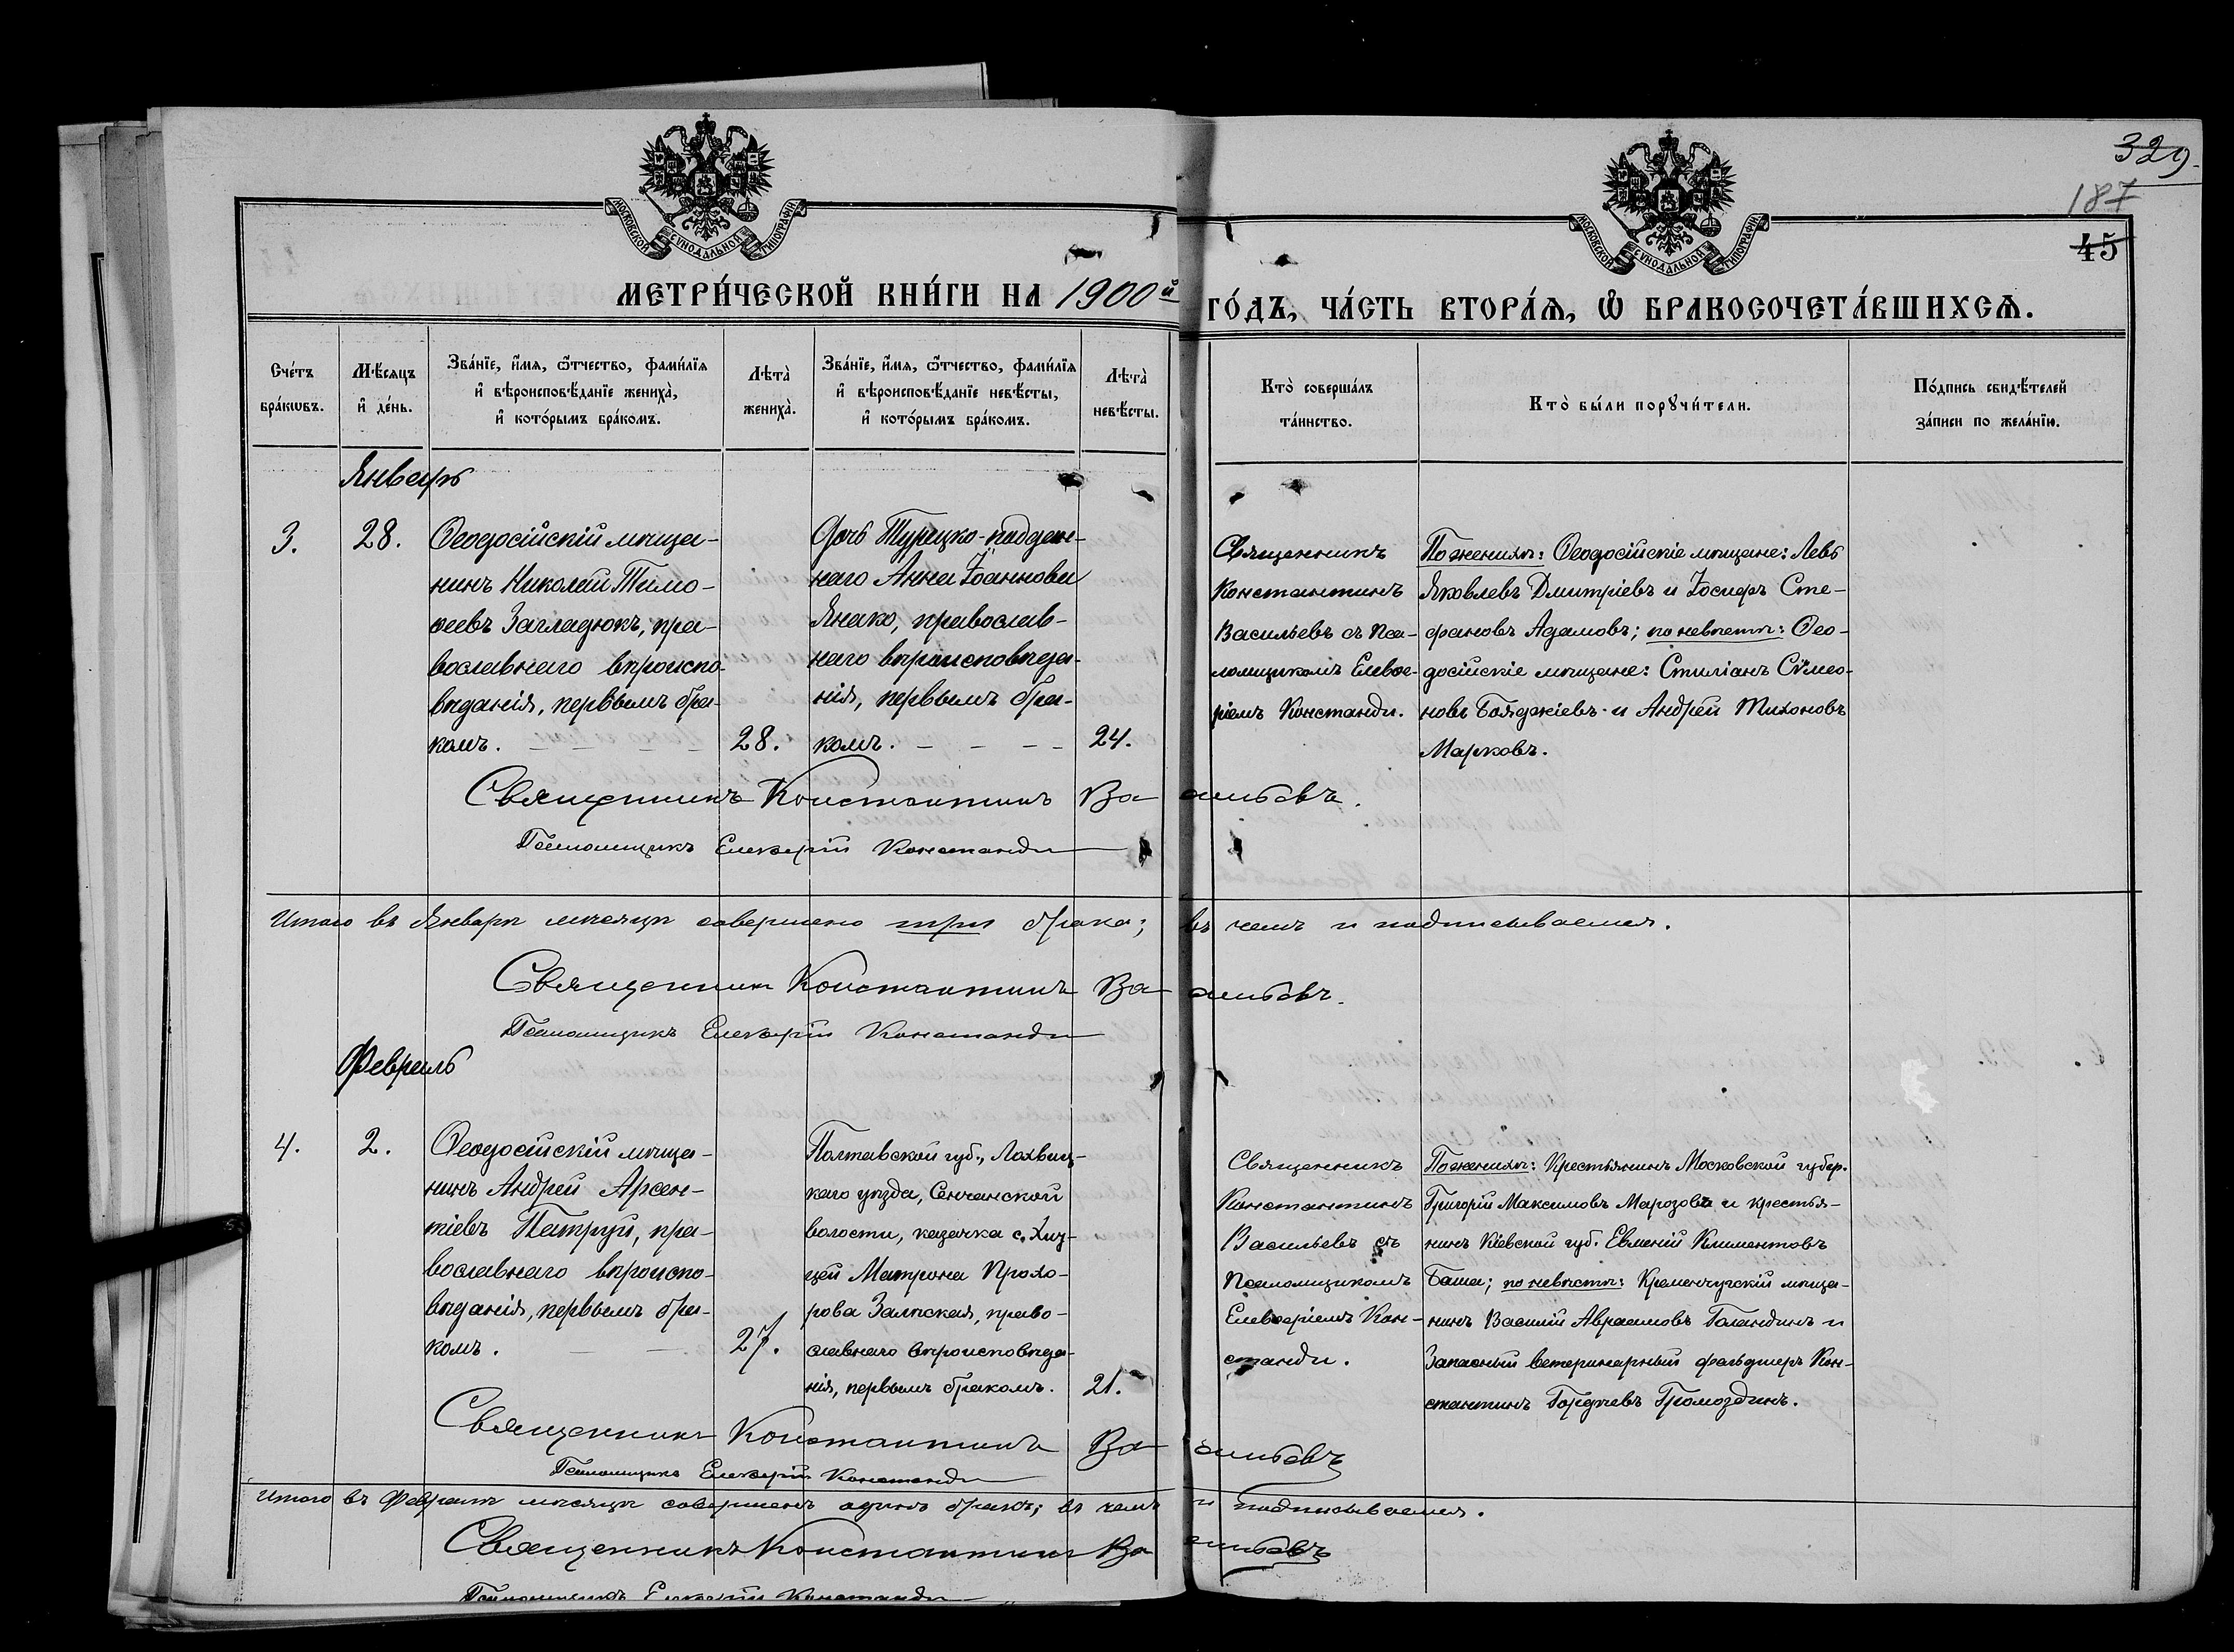 329.
187
45
МОСКОВСКОЙ СУНОДАЛЬНОЙ ТИПОГРАФIИ
МОСКОВСКОЙ СУНОДАЛЬНОЙ ТИПОГРАФIИ
МЕТРИ́ЧЕСКОЙ КНИ́ГИ НА 1900й ГО́ДЪ, ЧА́СТЬ ВТОРА́Ѧ, Ѡ҆ БРАКОСОЧЕТА́ВШИХСѦ.
Сче́тъ
бра́кѡвъ.
Мѣ́сяцъ
и҆ де́нь.
Зва́нїе, и҆́мя, ѻ҆́тчество, фами́лїя
и҆ вѣроисповѣ́данїе жениха̀,
и҆ кото́рымъ бра́комъ.
Лѣта̀
жениха̀.
Зва́нїе, и҆́мя, ѻ҆́тчество, фами́лїя
и҆ вѣроисповѣ́данїе невѣ́сты,
и҆ кото́рымъ бра́комъ.
Лѣта̀
невѣ́сты.
Кто̀ соверша́лъ
та́инство.
Кто̀ бы́ли порꙋчи́тели.
По́дпись свидѣ́телей
за́писи по жела́нїю.
Январь
3.
28.
Ѳеодосійскій мѣща-
нинъ Николай Тимо-
ѳеевъ Загладюкъ, пра-
вославнаго вѣроиспо-
вѣданія, первымъ бра-
комъ.
28.
Дочь Турецко-поддан-
наго Анна Іоаннова
Янако, православ-
наго вѣроисповѣда-
нія, первымъ бра-
комъ.
24.
Священникъ
Константинъ
Васильевъ съ Пса-
ломщикомъ Елевѳе-
ріемъ Константи.
По женихѣ: Ѳеодосійскіе мѣщане: Левъ
Яковлевъ Дмитріевъ и Іосифъ Сте-
фановъ Адамовъ; по невѣстѣ: Ѳео-
досійскіе мѣщане: Стиліанъ Сѵмео-
новъ Бояджіевъ и Андрей Тихоновъ
Марковъ.
Священникъ Константинъ Васильевъ.
Псаломщикъ Елевѳерій Констанди
Итого въ Январѣ мѣсяцѣ совершено три брака; въ чемъ и подписываемся.
Священникъ Константинъ Васильевъ.
Псаломщикъ Елевѳерій Констанди
Февраль
4.
2.
Ѳеодосійскій мѣща-
нинъ Андрей Арсен-
тіевъ Патруй, пра-
вославнаго вѣроиспо-
вѣданія, первымъ бра-
комъ.
27.
Полтавской губ., Лохвиц-
каго уѣзда, Сенчанской
волости, казачка с. Хиз-
цей Матрона Прохо-
рова Залѣская, право-
славнаго вѣроисповѣда-
нія, первымъ бракомъ.
21.
Священникъ
Константинъ
Васильевъ съ
Псаломщикомъ
Елевѳеріемъ Кон-
станди.
По женихѣ: Крестьянинъ Московской губер.
Григорій Максимовъ Марозовъ и крестья-
нинъ Кіевской губ. Евменій Климентовъ
Баша; по невѣстѣ: Кременчугскій мѣща-
нинъ Василій Авраамовъ Баландинъ и
Запасный ветеринарный фельдшеръ Кон-
стантинъ Гордѣевъ Громоздинъ.
Священникъ Константинъ Васильевъ
Псаломщикъ Елевѳерій Констанди
Итого въ Февралѣ мѣсяцѣ совершенъ одинъ бракъ; въ чемъ и подписываемся.
Священникъ Константинъ Васильевъ
Псаломщикъ Елевѳерій Констанди